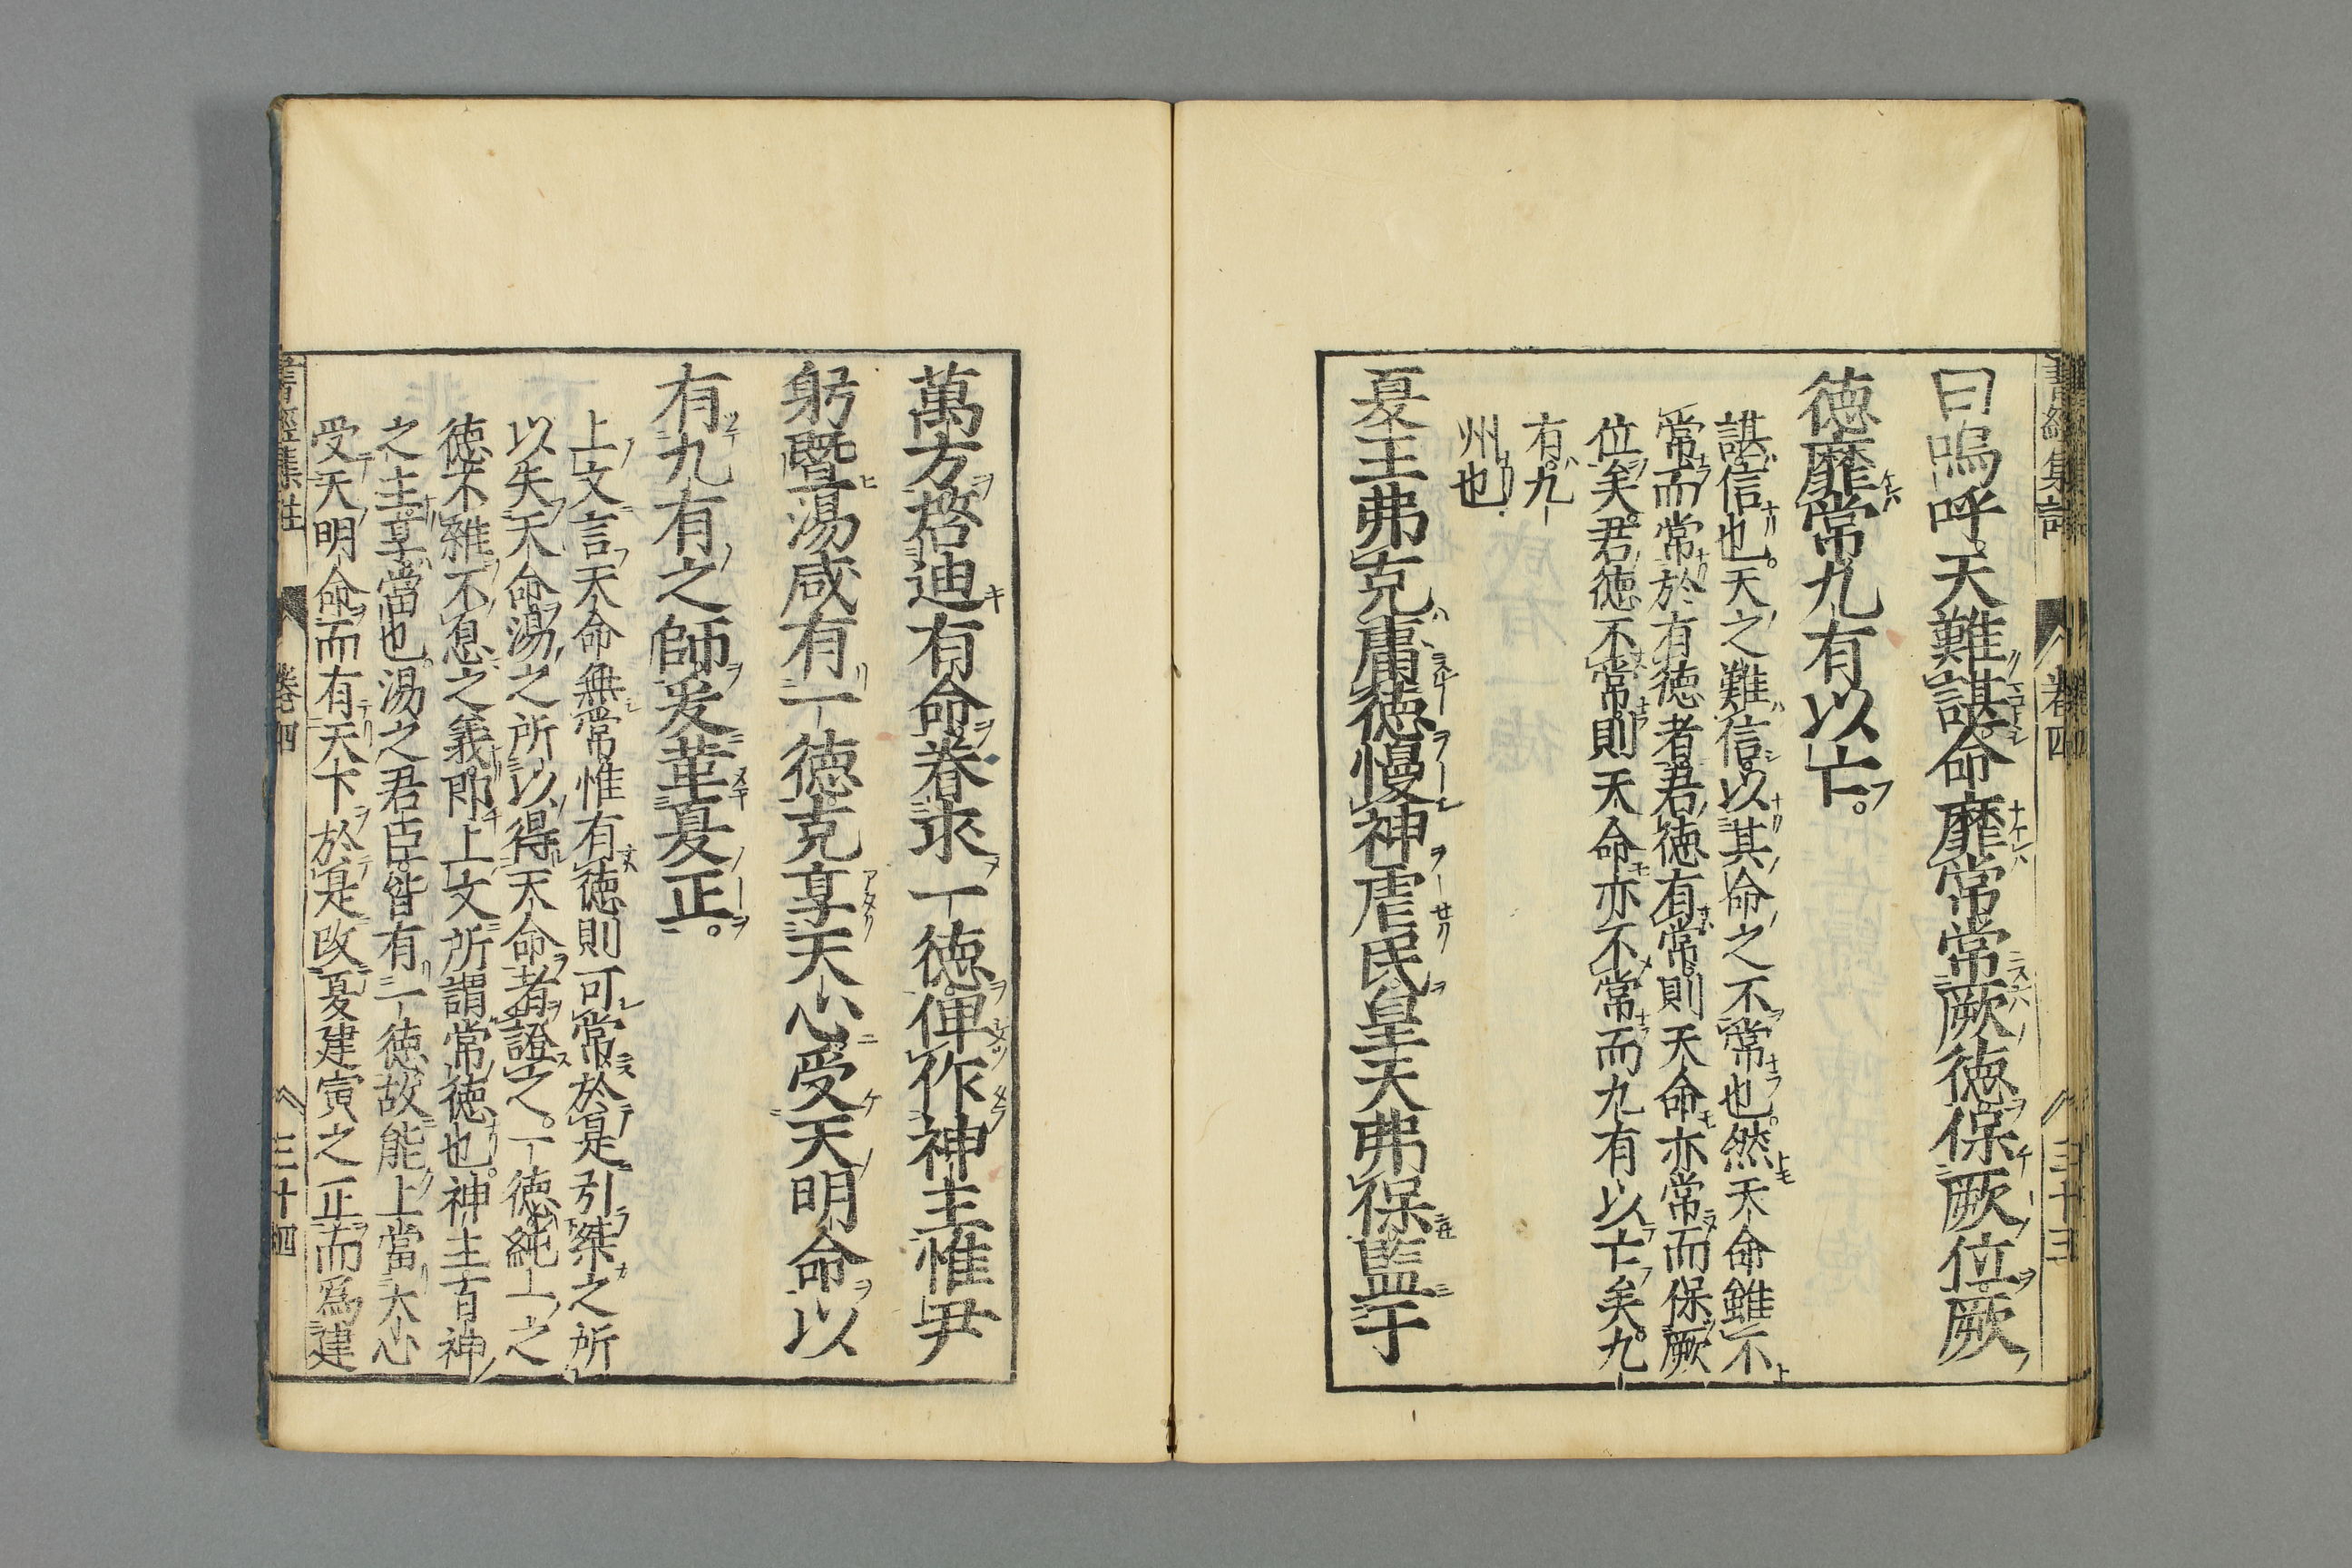 曰嗚呼天難諶命靡常常厥徳保厥位厥
徳靡常九有以亡。
諶信也。天之難信以其命之不常也。然天命雖不
常而常於有徳者君徳有常則天命亦常而保厥
位矣君徳不常則天命亦不常而九有以亡矣。九
有九
州也
夏王弗克庸徳慢神虐民皇天弗保監于
萬方啓迪有命眷求一徳俾作神主惟尹
躬曁湯咸有一徳克享天心受天明命以
有九有之師爰革夏正。
上文言天命無常惟有徳則可常於是引桀之所
以失天命湯之所以得天命者證之。一徳純一之
徳不雜不息之義即上文所謂常徳也。神主百神
之主享當也。湯之君臣皆有一徳故能上當天心
受天明命而有天下於是改夏建寅之正而爲建
卷四
三十四